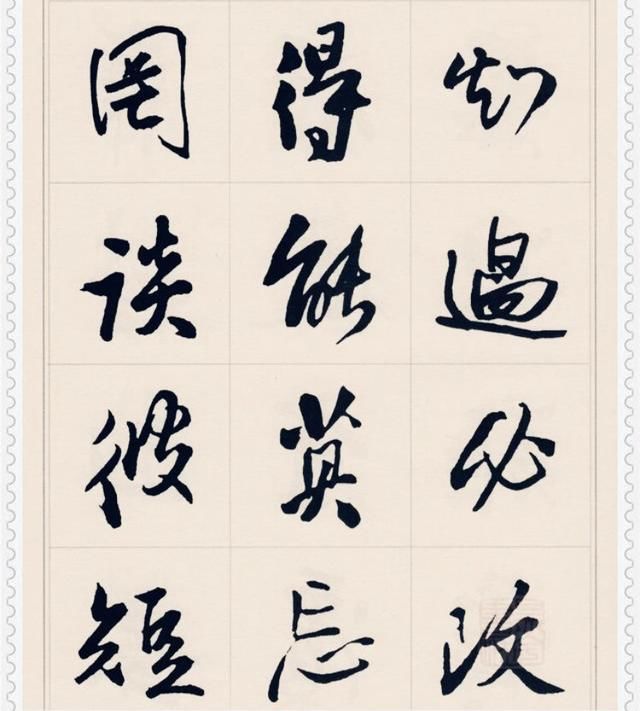 知過必改
得能莫忘
罔談彼短